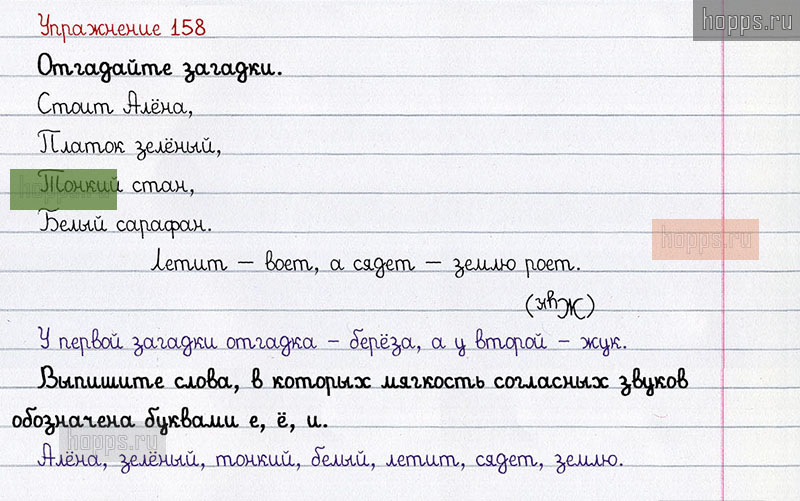 Упражнение 158
hopps.ru
Отгадайте загадки.
Стоит Алёна,
Платок зелёный,
Тонкий стан,
Белый сарафан.
hopps.ru
Летит – воет, а сядет – землю роет.
(Жук)
У первой загадки отгадка – берёза, а у второй – жук.
Выпишите слова, в которых мягкость согласных звуков
обозначена буквами е, ё, и.
hopps.ru
Алёна, зелёный, тонкий, белый, летит, сядет, землю.